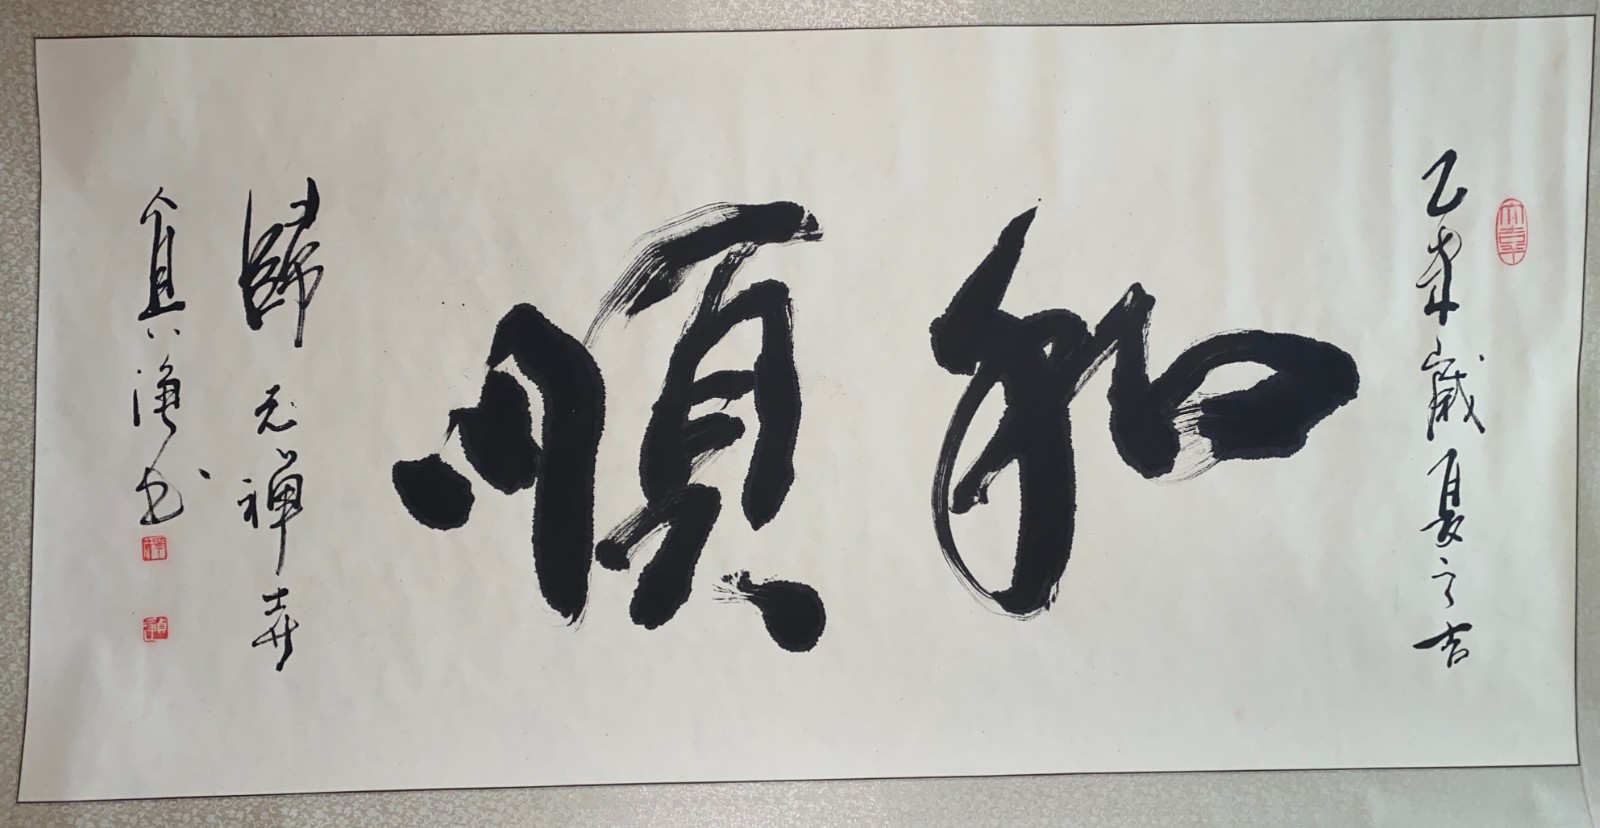 乙未歲夏之吉
和順
歸元禪寺
真淨书